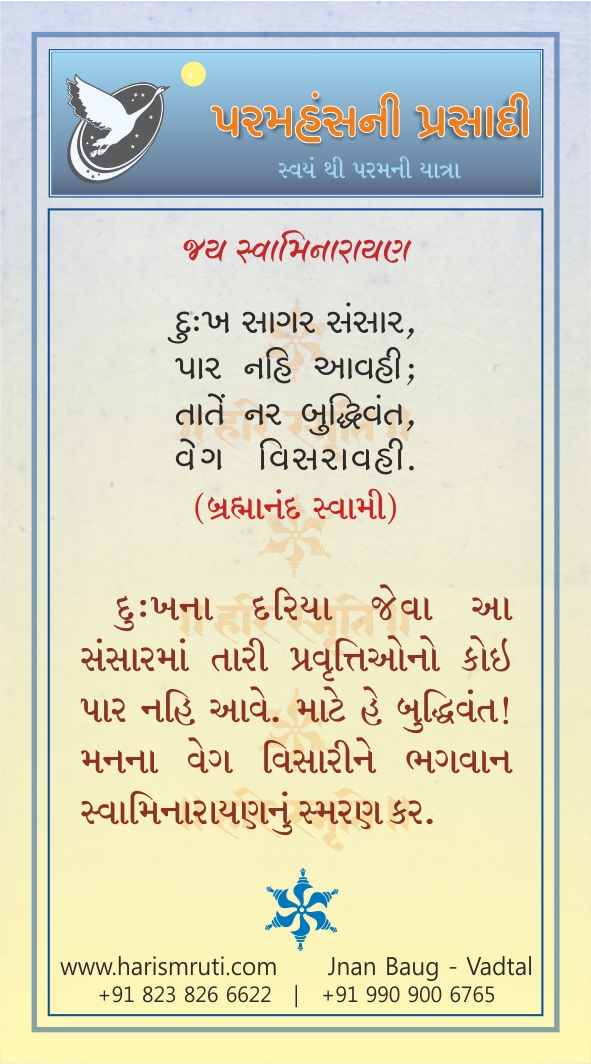 પરમહંસની પ્રસાદી
સ્વયં થી પરમની યાત્રા
જય સ્વામિનારાયણ
દુઃખ સાગર સંસાર,
પાર નહિ આવહી;
તાતેં નર બુદ્ધિવંત,
વેગ વિસરાવહી.
(બ્રહ્માનંદ સ્વામી)
દુઃખના દરિયા જેવા આ
સંસારમાં તારી પ્રવૃત્તિઓનો કોઇ
પાર નહિ આવે. માટે હે બુદ્ધિવંત!
મનના વેગ વિસારીને ભગવાન
સ્વામિનારાયણનું સ્મરણ કર.
॥ हरि स्मृति ॥
॥ हरि स्मृति ॥
॥ हरि स्मृति ॥
www.harismruti.com Jnan Baug - Vadtal
+91 823 826 6622 | +91 990 900 6765